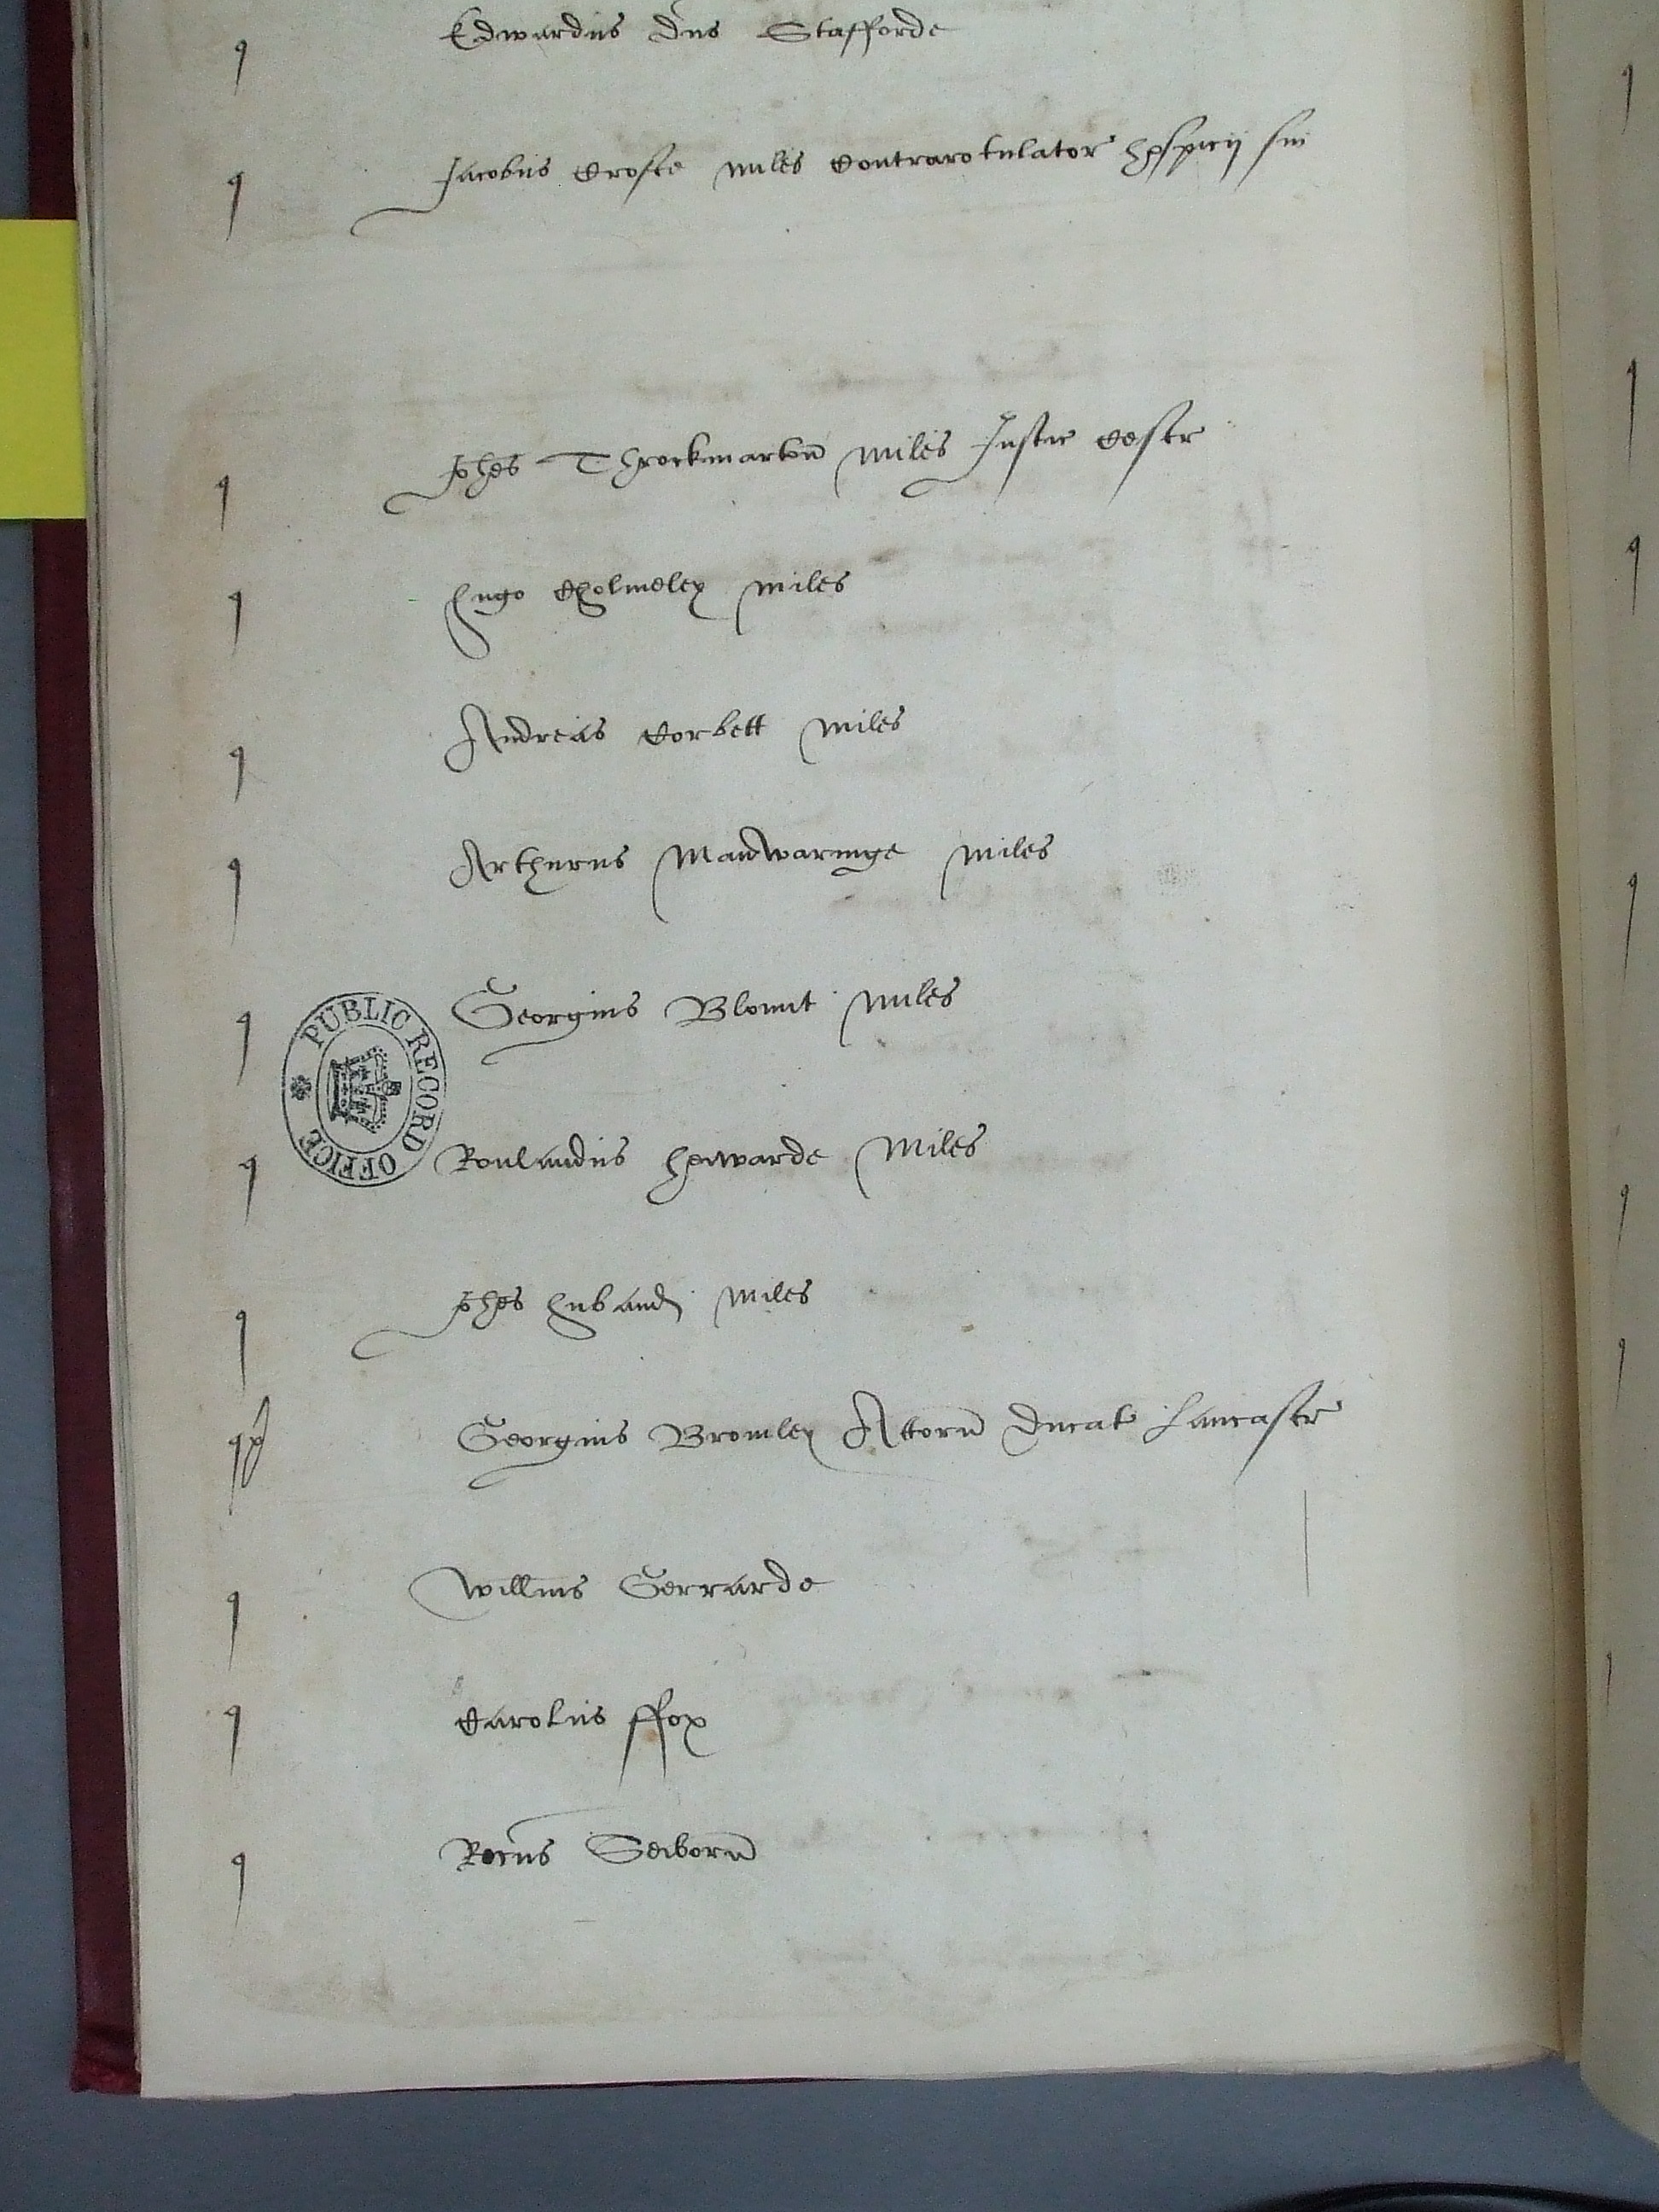 q Edwardus Dns Stafforde
q Jacobus Crofte miles Contrarotulator hospicij sui
q Johes Throckmarton miles Justic Cestr
q Hugo Cholmeley miles
q Andreas Corbett miles
q Arthurus Manwaringe miles
q Georgius Blount miles
PUBLIC RECORD OFFICE
q Roulandus Heiwarde Miles
q Johes Huband miles
q Georgius Bromley Attorn Ducat Lancastr
q Willmus Gerrarde
q Carolus ffox
q Ricus Seiborn